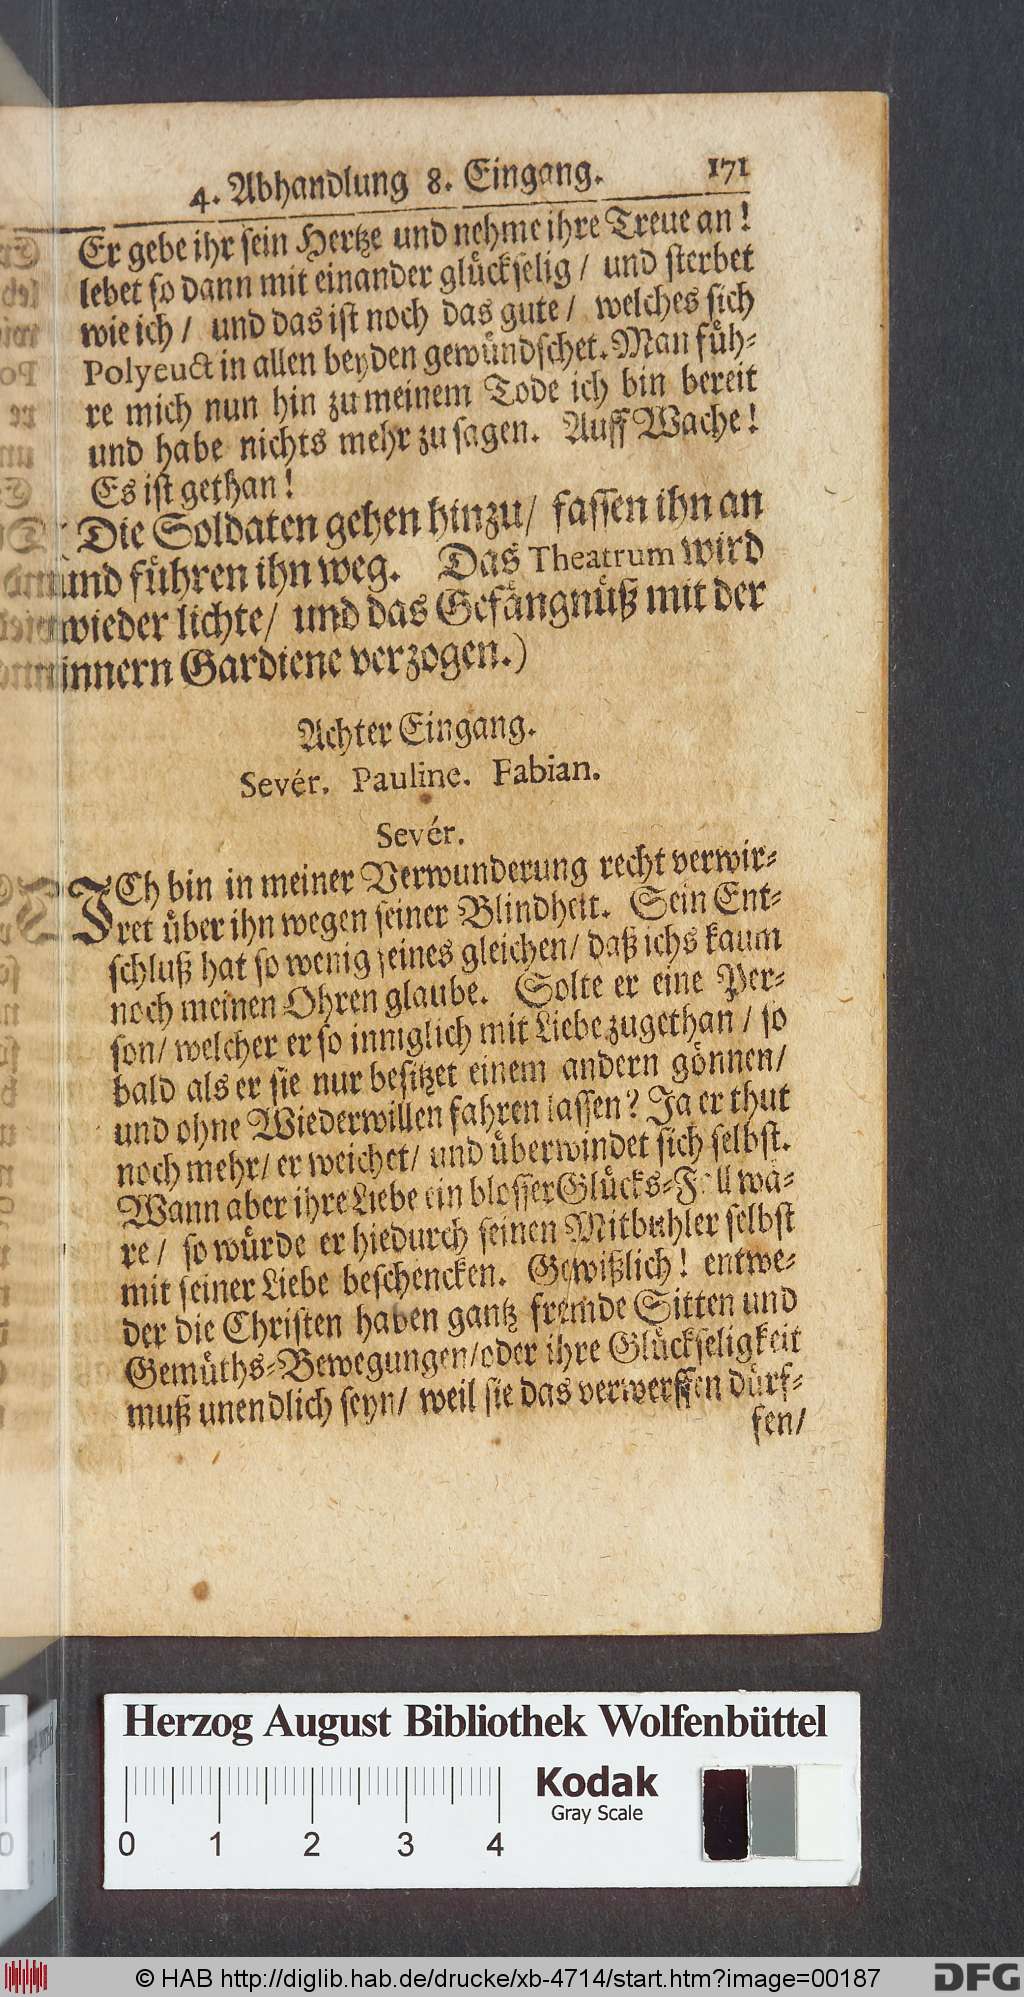 4. Abhandlung 8. Eingang. 171
Er gebe ihr sein Hertze und nehme ihre Treue an!
lebet so dann mit einander glückselig / und sterbet
wie ich / und das ist noch das gute / welches sich
Polyeuct in allen beyden gewündschet. Man füh-
re mich nun hin zu meinem Tode ich bin bereit
und habe nichts mehr zu sagen. Auff Wache!
Es ist gethan!
( Die Soldaten gehen hinzu/ fassen ihn an
und führen ihn weg. Das Theatrum wird
wieder lichte/ und das Gefängnüß mit der
innern Gardiene verzogen.)
Achter Eingang.
Sevér. Pauline. Fabian.
Sevér.
ICh bin in meiner Verwunderung recht verwir-
ret über ihn wegen seiner Blindheit. Sein Ent-
schluß hat so wenig seines gleichen/ daß ichs kaum
noch meinen Ohren glaube. Solte er eine Per-
son/ welcher er so inniglich mit Liebe zugethan / so
bald als er sie nur besitzet einem andern gönnen/
und ohne Wiederwillen fahren lassen? Ja er thut
noch mehr/ er weichet/ und überwindet sich selbst.
Wann aber ihre Liebe ein blosser Glücks-Fall wä-
re/ so würde er hiedurch seinen Mitbuhler selbst
mit seiner Liebe beschencken. Gewißlich! entwe-
der die Christen haben gantz fremde Sitten und
Gemüths-Bewegungen/oder ihre Glückseligkeit
muß unendlich seyn/ weil sie das verwerffen dürf-
fen/
Herzog August Bibliothek Wolfenbüttel
Kodak
Gray Scale
0 1 2 3 4
© HAB http://diglib.hab.de/drucke/xb-4714/start.htm?image=00187
DFG